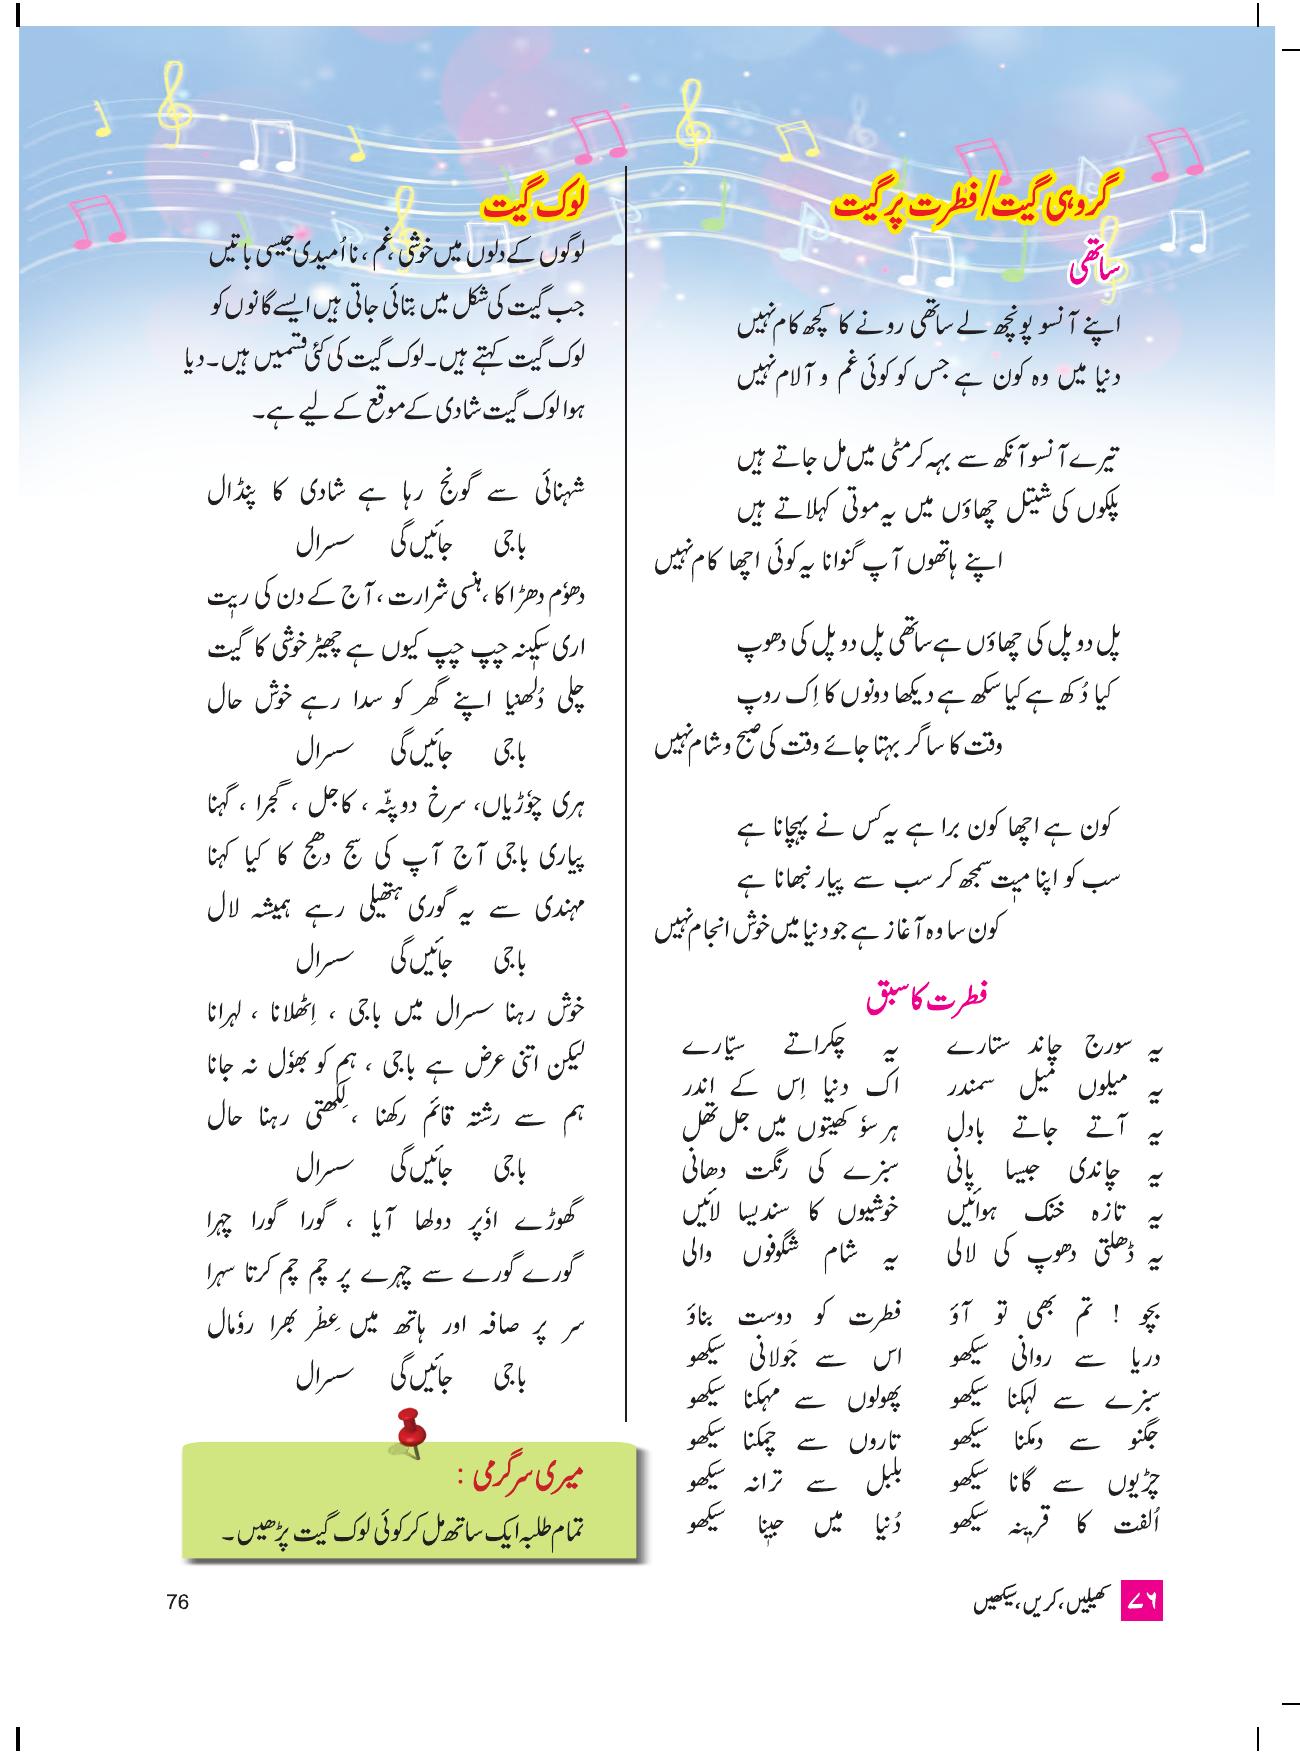 گروہی گیت/فطرت پر گیت
ساتھی
اپنے آنسو پونچھ لے ساتھی رونے کا کچھ کام نہیں
دنیا میں وہ کون ہے جس کو کوئی غم و آلام نہیں
تیرے آنسو آنکھ سے بہہ کر مٹی میں مل جاتے ہیں
پلکوں کی شیتل چھاؤں میں یہ موتی کہلاتے ہیں
اپنے ہاتھوں آپ گنوانا یہ کوئی اچھا کام نہیں
پل دو پل کی چھاؤں ہے ساتھی پل دو پل کی دھوپ
کیا دُکھ ہے کیا سکھ ہے دیکھا دونوں کا اِک روپ
وقت کا ساگر بہتا جائے وقت کی صبح و شام نہیں
کون ہے اچھا کون برا ہے یہ کس نے پہچانا ہے
سب کو اپنا میٖت سمجھ کر سب سے پیار نبھانا ہے
کون سا وہ آغاز ہے جو دنیا میں خوش انجام نہیں
فطرت کا سبق
یہ سورج چاند ستارے یہ چکراتے سیّارے
یہ میلوں میل سمندر اک دنیا اِس کے اندر
یہ آتے جاتے بادل ہر سوٗ کھیتوں میں جل تھل
یہ چاندی جیسا پانی سبزے کی رنگت دھانی
یہ تازہ خنک ہوائیں خوشیوں کا سندیسا لائیں
یہ ڈھلتی دھوپ کی لالی یہ شام شگوفوں والی
بچو ! تم بھی تو آؤ فطرت کو دوست بناؤ
دریا سے روانی سیکھو اس سے جَولانی سیکھو
سبزے سے لہکنا سیکھو پھولوں سے مہکنا سیکھو
جگنو سے دمکنا سیکھو تاروں سے چمکنا سیکھو
چڑیوں سے گانا سیکھو بلبل سے ترانہ سیکھو
اُلفت کا قریٖنہ سیکھو دُنیا میں جیٖنا سیکھو
لوک گیت
لوگوں کے دلوں میں خوشی، غم، نا اُمیدی جیسی باتیں
جب گیت کی شکل میں بتائی جاتی ہیں ایسے گانوں کو
لوک گیت کہتے ہیں۔ لوک گیت کی کئی قسمیں ہیں۔ دیا
ہوا لوک گیت شادی کے موقع کے لیے ہے۔
شہنائی سے گونج رہا ہے شادی کا پنڈال
باجی جائیں گی سسرال
دھوٗم دھڑاکا، ہنسی شرارت، آج کے دن کی ریٖت
اری سکیٖنہ چپ چپ کیوں ہے چھیڑ خوشی کا گیت
چلی دُلھنیا اپنے گھر کو سدا رہے خوش حال
باجی جائیں گی سسرال
ہری چوٗڑیاں، سرخ دوپٹّہ ، کاجل ، گجرا ، گہنا
پیاری باجی آج آپ کی سج دھج کا کیا کہنا
مہندی سے یہ گوری ہتھیلی رہے ہمیشہ لال
باجی جائیں گی سسرال
خوش رہنا سسرال میں باجی ، اِٹھلانا ، لہرانا
لیکن اتنی عرض ہے باجی ، ہم کو بھوٗل نہ جانا
ہم سے رشتہ قائم رکھنا ، لِکھتی رہنا حال
باجی جائیں گی سسرال
گھوڑے اوٗپر دولھا آیا ، گورا گورا چہرا
گورے گورے سے چہرے پر چم چم کرتا سہرا
سر پر صافہ اور ہاتھ میں عِطْر بھرا روٗمال
باجی جائیں گی سسرال
میری سرگرمی :
تمام طلبہ ایک ساتھ مل کر کوئی لوک گیت پڑھیں۔
۷۶ کھیلیں، کریں، سیکھیں
76